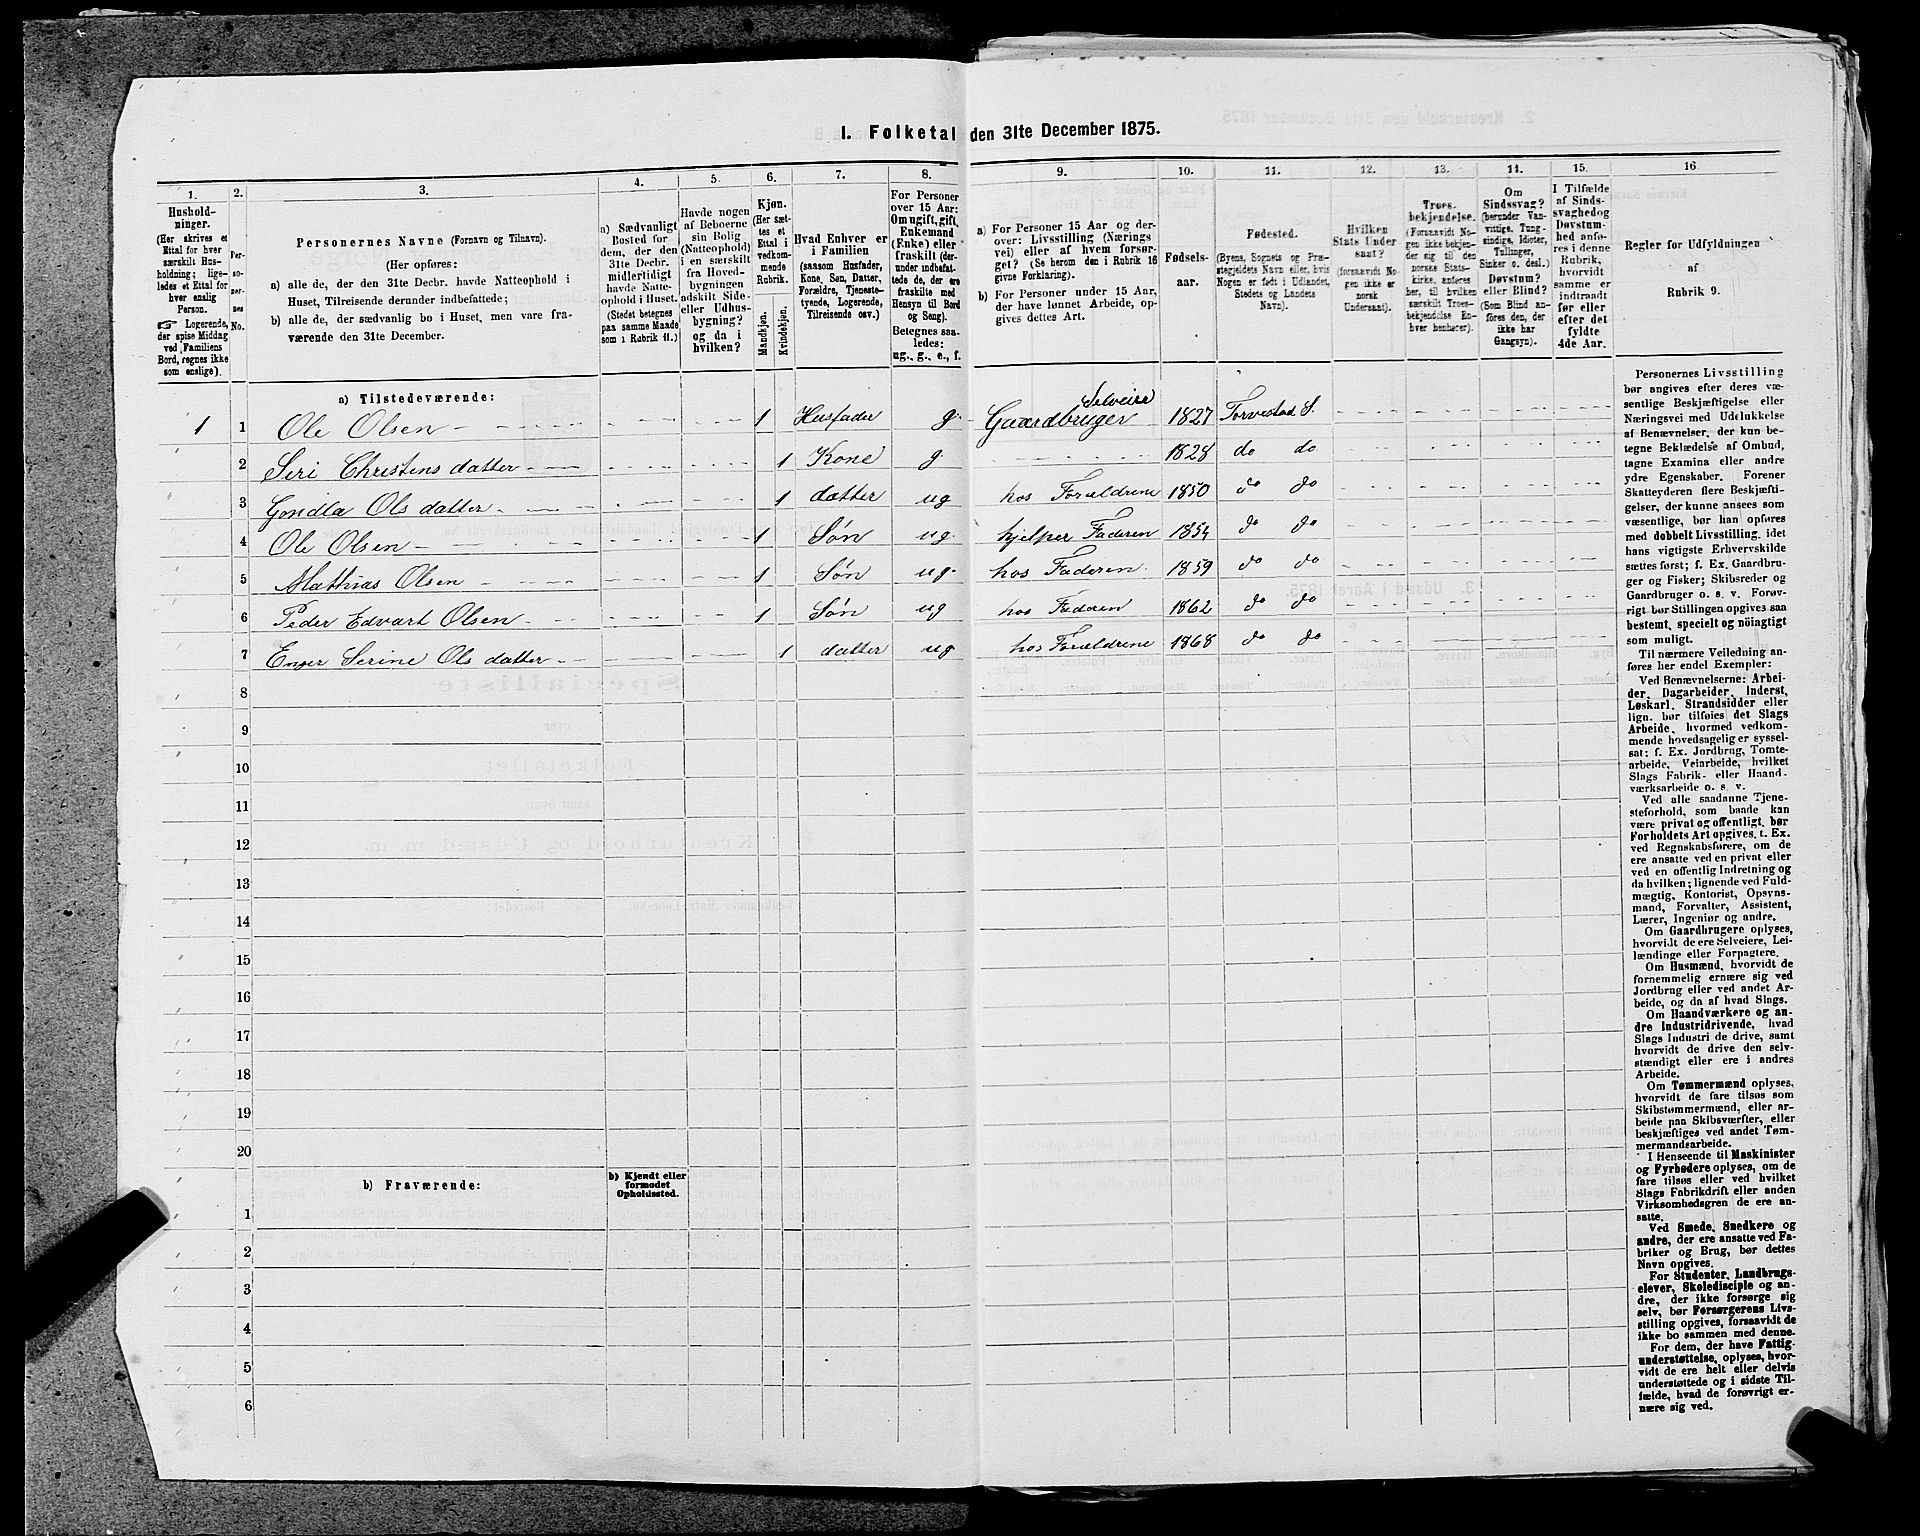 1. Folketal den 31te December 1875.
1.
Hushold-
ninger.
(Her skrives et
Ettal for hver
særskilt Hus-
holdning; lige-
ledes et Ettal for
hver enslig
Person.
☞ Logerende,
der spise Middag
ved Familiens
Bord, regnes ikke
som enslige).
2.
Per-
so-
ner-
nes
No.
3.
Personernes Navne (Fornavn og Tilnavn).
(Her opføres:
a) alle de, der den 31te Decbr. havde Natteophold i
Huset, Tilreisende derunder indbefattede;
b) alle de, der sædvanlig bo i Huset, men vare fra-
værende den 31te December.
4.
a) Sædvanligt
Bosted for
dem, der den
31te Decbr.
midlertidigt
havde Natte-
ophold i Huset.
(Stedet betegnes
paa samme Maade
som i Rubrik 11.)
5.
Havde nogen
af Beboerne
sin Bolig
(Natteophold)
i en særskilt
fra Hoved-
bygningen
adskilt Side-
eller Udhus-
bygning?
og da i
hvilken?
6.
Kjøn.
(Her sæt-
tes et
Ettal i
vedkom-
mende
Rubrik.
Mandkjøn.
Kvindekjøn.
7.
Hvad Enhver er
i Familien
(saasom Husfader,
Kone, Søn, Datter,
Forældre, Tjeneste-
tyende, Logerende,
Tilreisende osv.)
8.
For Personer
over 15 Aar:
Om ugift, gift,
Enkemand
(Enke) eller
fraskilt (der-
under indbefat-
tede de, der ere
fraskilte med
Hensyn til Bord
og Seng).
Betegnes saa-
ledes:
ug., g., e., f.
9.
a) For Personer 15 Aar og der-
over: Livsstilling (Nærings
vei) eller af hvem forsør-
get? (Se herom den i Rubrik 16
givne Forklaring).
b) For Personer under 15 Aar,
der have lønnet Arbeide, op-
gives dettes Art.
10.
Fødsels-
aar.
11.
Fødested.
(Byens, Sognets og Præ-
stegjeldets Navn eller, hvis
Nogen er født i Udlandet,
Stedets og Landets
Navn).
12.
Hvilken
Stats Under
saat?
(forsaavidt No-
gen ikke er
norsk
Undersaat).
13.
Troes-
bekjendelse.
(Forsaavidt No-
gen ikke bekjen-
der sig til den
norske Stats-
kirke, anføres
her, til hvilken
særskilt Troes-
bekjendelse En-
hver henhører).
14.
Om
Sindssvag?
(herunder Van-
vittige, Tung-
sindige, Idioter,
Tullinger,
Sinker o. desl.)
Døvstum?
eller Blind?
(Som Blind an-
føres den, der
ikke har
Gangsyn).
15.
I Tilfælde
af Sinds-
svaghed og
Døvstum-
hed anfø-
res i denne
Rubrik,
hvorvidt
samme er
indtraadt
før eller
efter det
fyldte
4de Aar.
16
Regler for Udfyldningen
af
Rubrik 9.
a) Tilstedeværende:
1 1 Ole Olsen 1 Husfader g. Gaardbruger Selveier 1827 Torvestad S.
2 Seri Christensdatter 1 Kone g. 1828 do do
3 Gondla Olsdatter 1 datter ug hos Forældrene 1850 do do
4 Ole Olsen 1 Søn ug. hjelper Faderen 1854 do do
5 Matthias Olsen 1 Søn ug. hos Faderen 1859 do do
6 Peder Edvart Olsen 1 Søn ug hos Faderen 1862 do do
7 Enger Serine Olsdatter 1 datter ug hos Forældrene 1868 do do
8
9
10
11
12
13
14
15
16
17
18
19
20
b) Fraværende:
b) Kjendt eller
formodet
Opholdssted.
1
2
3
4
5
6
Personernes Livsstilling
bør angives efter deres væ-
sentlige Beskjæftigelse eller
Næringsvei med Udelukkelse
af Benævnelser, der kun be-
tegne Beklædelse af Ombud,
tagne Examina eller andre
ydre Egenskaber. Forener
Skatteyderen flere Beskjæfti-
gelser, der kunne ansees som
væsentlige, bør han opføres
med dobbelt Livsstilling, idet
hans vigtigste Erhvervskilde
sættes først; f. Ex. Gaardbru-
ger og Fisker; Skibsreder og
Gaardbruger o. s. v. Forøv-
rigt bør Stillingen opgives saa
bestemt, specielt og nöiagtigt
som muligt.
Til nærmere Veiledning an-
føres her endel Exempler:
Ved Benævnelserne: Arbei-
der, Dagarbeider, Inderst,
Løskarl, Strandsidder eller
lign. bør tilføies det Slags
Arbeide, hvormed vedkom-
mende hovedsagelig er syssel-
sat; f. Ex. Jordbrug, Tomte-
arbeide, Veiarbeide, hvilket
Slags Fabrik- eller Haand-
værksarbeide o. s. v.
Ved alle saadanne Tjene-
steforhold, som baade kan
være privat og offentligt, bør
Forholdets Art opgives, t. Ex.
ved Regnskabsførere, om de
ere ansatte ved en privat eller
ved en offentlig Indretning og
da hvilken; lignende ved Fuld-
mægtig, Kontorist, Opsyns-
mand, Forvalter, Assistent,
Lærer, Ingeniør og andre.
Om Gaardbrugere oplyses,
hvorvidt de ere Selveiere, Lei-
lændinge eller Forpagtere.
Om Husmænd, hvorvidt de
fornemmelig ernære sig ved
Jordbrug eller ved andet Ar-
beide, og da af hvad Slags.
Om Haandværkere og an-
dre Industridrivende, hvad
Slags Industri de drive, samt
hvorvidt de drive den selv-
stændigt eller ere i andres
Arbeide.
Om Tømmermænd oplyses,
hvorvidt de fare tilsøs som
Skibstømmermænd, eller ar-
beide paa Skibsværfter, eller
beskjæftiges ved andet Tøm-
mermandsarbeide.
I Henseende til Maskinister
og Fyrbødere oplyses, om de
fare tilsøs eller ved hvilket
Slags Fabrikdrift eller anden
Virksomhedsgren de ere an-
satte.
Ved Smede, Snedkere og
andre, der ere ansatte ved Fa-
briker og Brug, bør dettes
Navn opgives.
For Studenter, Landbrugs-
elever, Skoledisciple og an-
dre, der ikke forsørge sig
selv, bør Forsørgerens Livs-
stilling opgives, forsaavidt de
ikke bo sammen med denne.
For dem, der have Fattig-
understøttelse, oplyses, hvor-
vidt de ere helt eller delvis
understøttede og i sidste Til-
fælde, hvad de forøvrigt er-
nære sig ved.